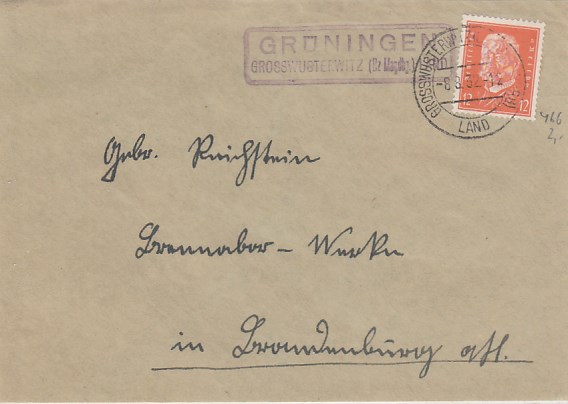 GRÜNINGEN
GROSSWUSTERWITZ (Bz Magdbg.) LAND
GROSSWUSTERWITZ
-8.8.32.-12
LAND
12 12
Gebr. Reichstein
Brennabor-Werke
in Brandenburg a/H.
466
2,-